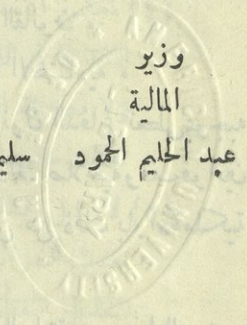 وزير
المالية
عبد الحليم الحمود